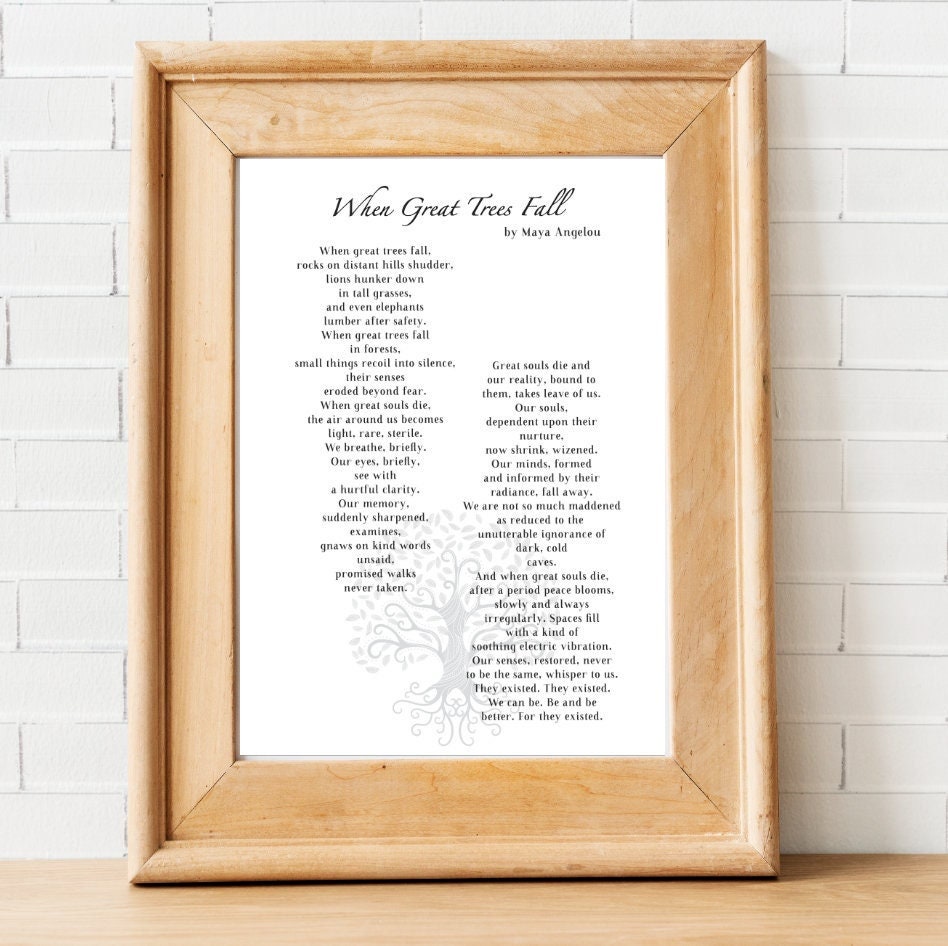 When Great Trees Fall
by Maya Angelou
When great trees fall,
rocks on distant hills shudder,
lions hunker down
in tall grasses,
and even elephants
lumber after safety.
When great trees fall
in forests,
small things recoil into silence,
their senses
eroded beyond fear.
When great souls die,
the air around us becomes
light, rare, sterile.
We breathe, briefly.
Our eyes, briefly,
see with
a hurtful clarity.
Our memory,
suddenly sharpened,
examines,
gnaws on kind words
unsaid,
promised walks
never taken.
Great souls die and
our reality, bound to
them, takes leave of us.
Our souls,
dependent upon their
nurture,
now shrink, wizened.
Our minds, formed
and informed by their
radiance, fall away.
We are not so much maddened
as reduced to the
unutterable ignorance of
dark, cold
caves.
And when great souls die,
after a period peace blooms,
slowly and always
irregularly. Spaces fill
with a kind of
soothing electric vibration.
Our senses, restored, never
to be the same, whisper to us.
They existed. They existed.
We can be. Be and be
better. For they existed.